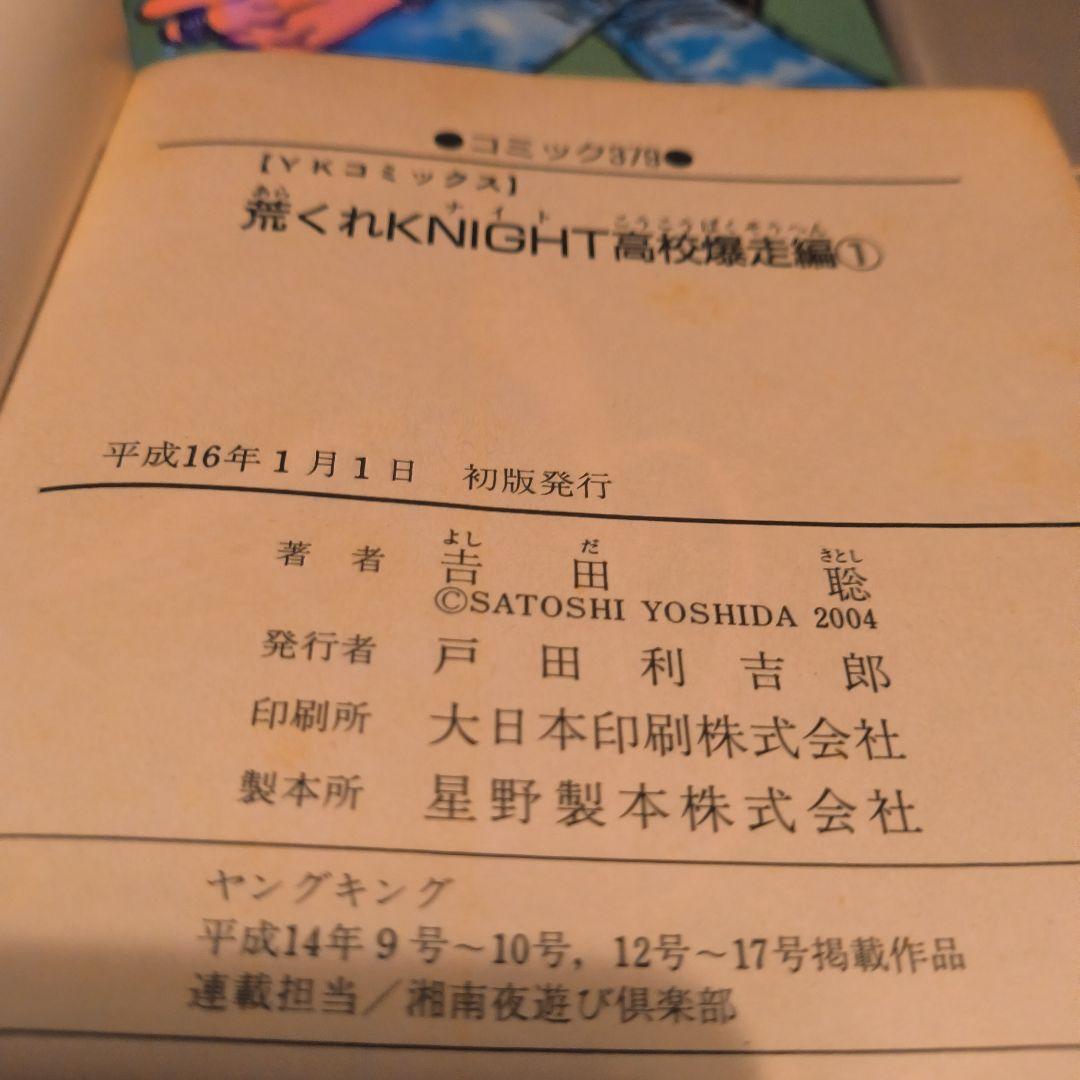 ●コミック379●
【YKコミックス】
あら ナイト こうこうばくそうへん
荒くれKNIGHT高校爆走編①
平成16年1月1日 初版発行
よし だ さとし
著者 吉田 聡
©SATOSHI YOSHIDA 2004
発行者 戸田利吉郎
印刷所 大日本印刷株式会社
製本所 星野製本株式会社
ヤングキング
平成14年9号～10号，12号～17号掲載作品
連載担当／湘南夜遊び倶楽部